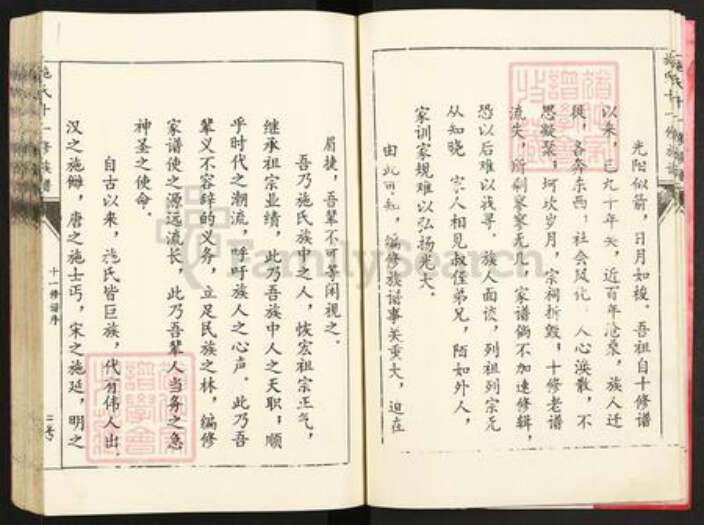 光阴似箭，日月如梭。吾祖自十修谱
以来，已九十年矣，近百年沧桑，族人迁
徙，各奔东西，社会风化，人心涣散，不
思凝聚；坷坎岁月，宗祠拆毁；十修老谱
流失，所剩寥寥无几，家谱倘不加速修辑，
恐以后难以找寻。族人面谈，列祖列宗无
从知晓，宗人相见叔侄弟兄，陌如外人，
家训家规难以弘扬光大。
由此可知，编修族谱事关重大，迫在
眉捷，吾辈不可等闲视之。
吾乃施氏族中之人，恢宏祖宗正气，
继承祖宗业绩，此乃吾族中人之天职；顺
乎时代之潮流，呼吁族人之心声，此乃吾
辈义不容辞的义务，立足民族之林，编修
家谱使之源远流长，此乃吾辈人当务之急
神圣之使命。
自古以来，施氏皆巨族，代有伟人出，
汉之施雠，唐之施士丐，宋之施延，明之
施氏十一修族谱
十一修谱序
FamilySearch